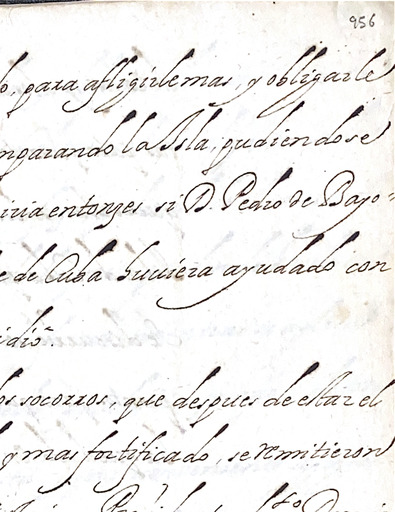 956
o, para afligirle mas, y obligarle
mparando la Isla, pudiendose
iria entonzes si D. Pedro de Bayo=
e de Cuba huviera ayudado con
idio~.
os socorros, que despues de estar el
y mas fortificado, se remitieron